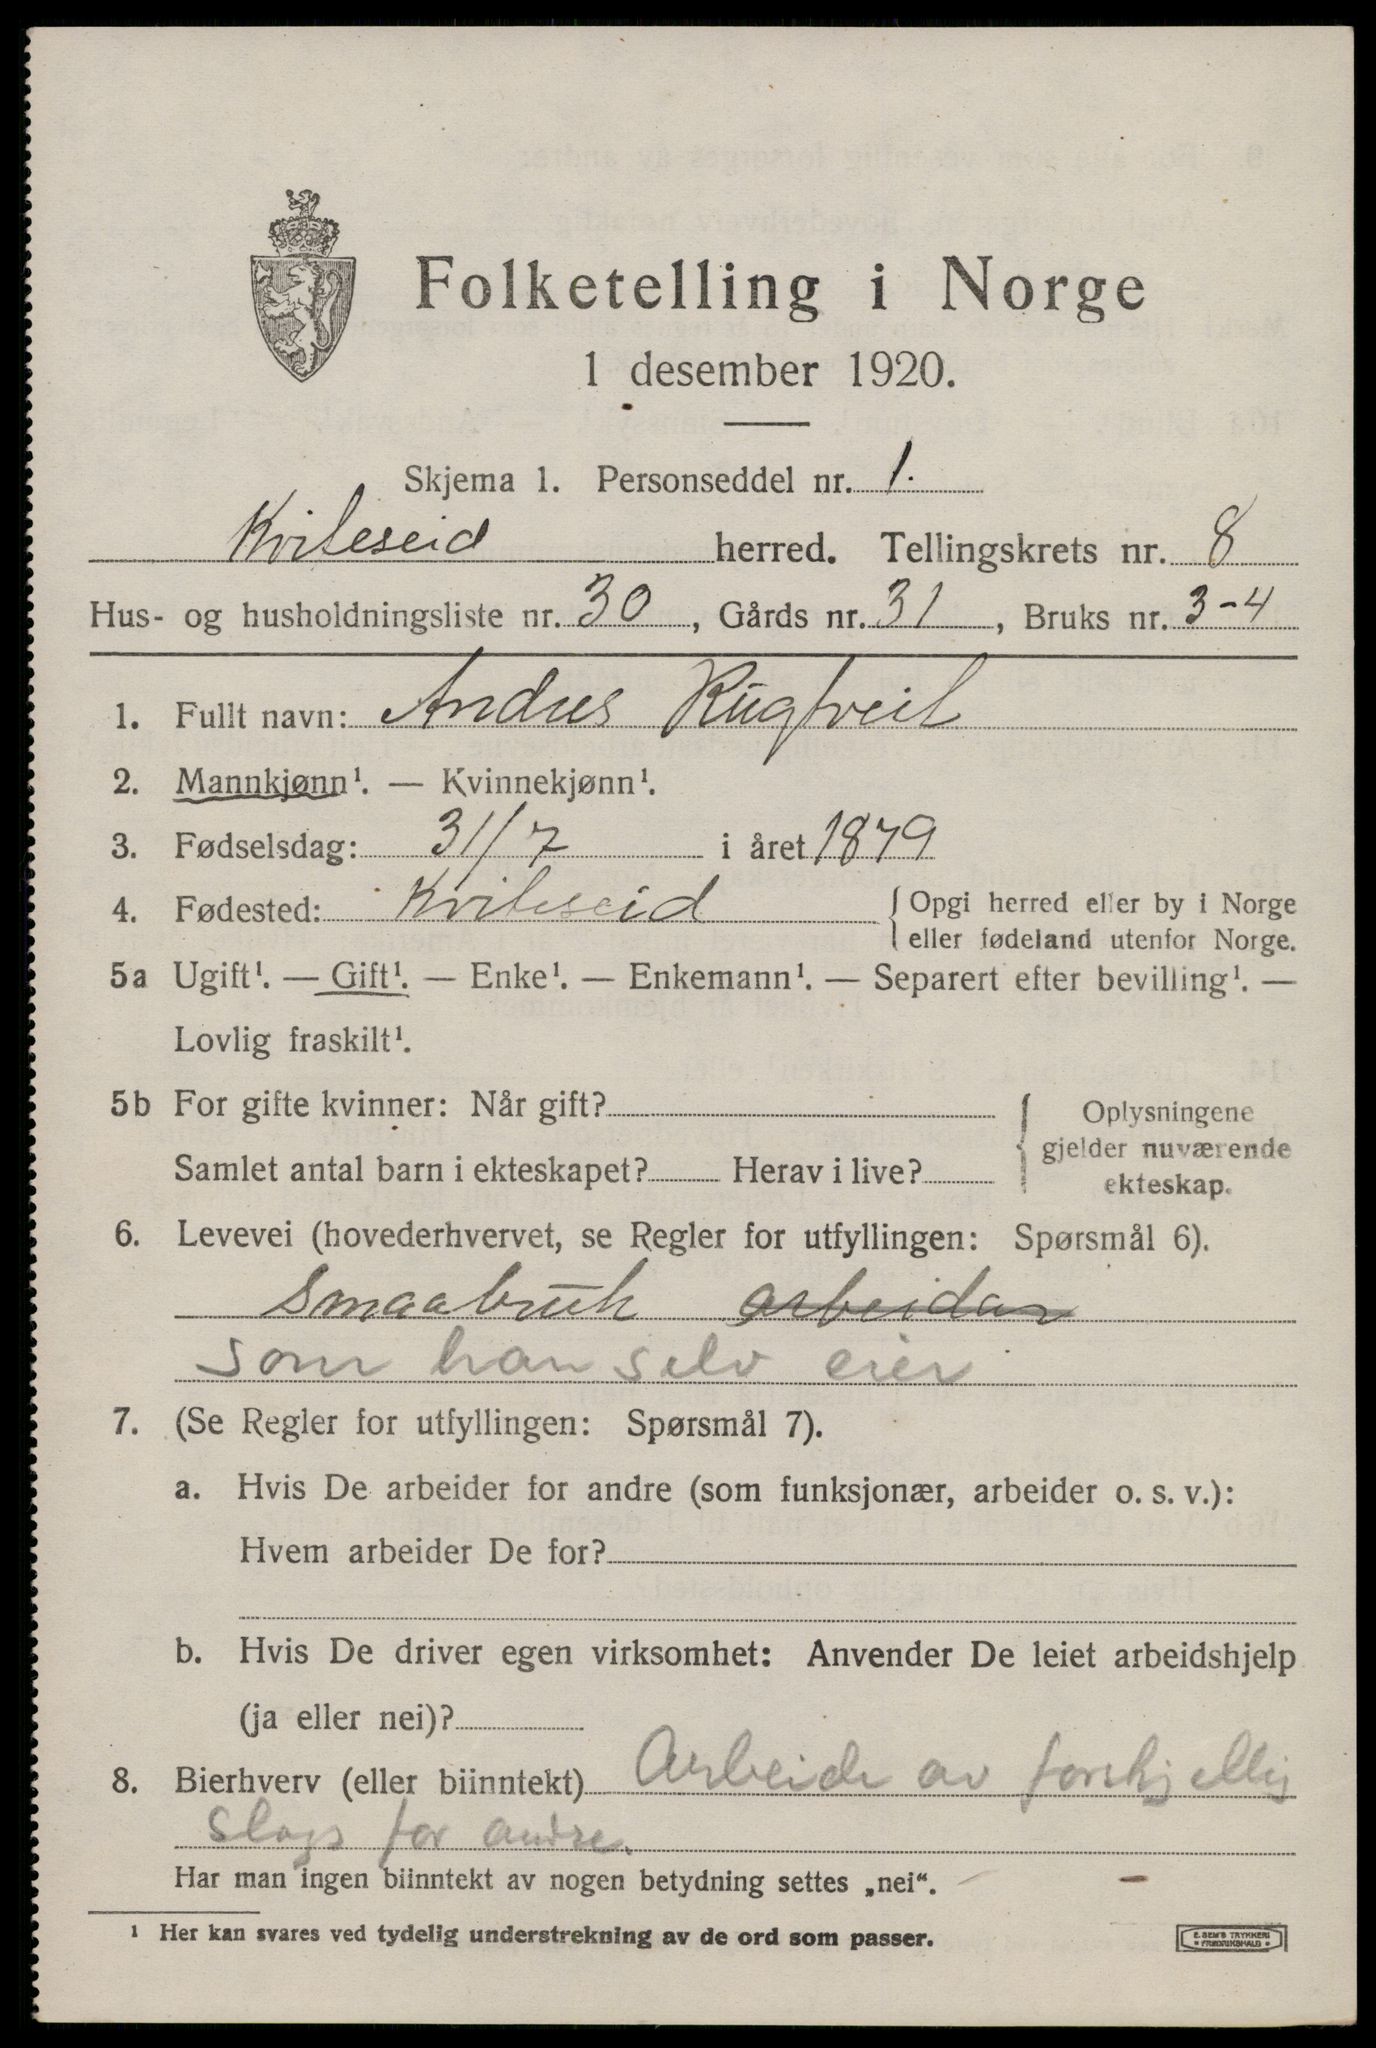 Folketelling i Norge
1 desember 1920.
Skjema 1. Personseddel nr. 1.
Kviteseid herred. Tellingskrets nr. 8
Hus- og husholdningsliste nr. 30, Gårds nr. 31, Bruks nr. 3-4
1. Fullt navn: Andres Rugtveit
2. Mannkjønn¹. — Kvinnekjønn¹.
3. Fødselsdag: 31/7 i året 1879
4. Fødested: Kviteseid { Opgi herred eller by i Norge
eller fødeland utenfor Norge.
5a Ugift¹. — Gift¹. — Enke¹. — Enkemann¹. — Separert efter bevilling¹. —
Lovlig fraskilt¹.
5b For gifte kvinner: Når gift?
Samlet antal barn i ekteskapet? Herav i live?
{ Oplysningene
gjelder nuværende
ekteskap.
6. Levevei (hovederhvervet, se Regler for utfyllingen: Spørsmål 6).
Smaabruk arbeidar
som han selv eier
7. (Se Regler for utfyllingen: Spørsmål 7).
a. Hvis De arbeider for andre (som funksjonær, arbeider o. s. v.):
Hvem arbeider De for?
b. Hvis De driver egen virksomhet: Anvender De leiet arbeidshjelp
(ja eller nei)?
8. Bierhverv (eller biinntekt) Arbeide av forskjellig
slags for andre.
Har man ingen biinntekt av nogen betydning settes „nei“.
¹ Her kan svares ved tydelig understrekning av de ord som passer.
E. SEM'S TRYKKERI
FREDRIKSHALD